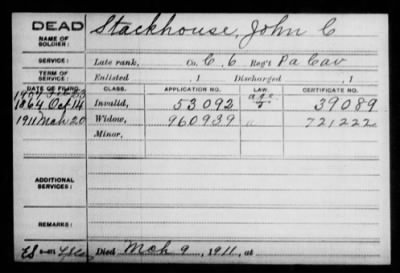 DEAD
NAME OF SOLDIER:
Stackhouse, John C
SERVICE:
Late rank, Co. C, 6 Reg't Pa Cav
TERM OF SERVICE:
Enlisted , 1 Discharged , 1
DATE OF FILING. CLASS. APPLICATION NO. LAW. CERTIFICATE NO.
23 age
Oct 14 Invalid, 53092 39089
1911 Mch 20 Widow, 960939 721222
Minor,
ADDITIONAL SERVICES:
REMARKS:
Died Mch 9, 1911, at